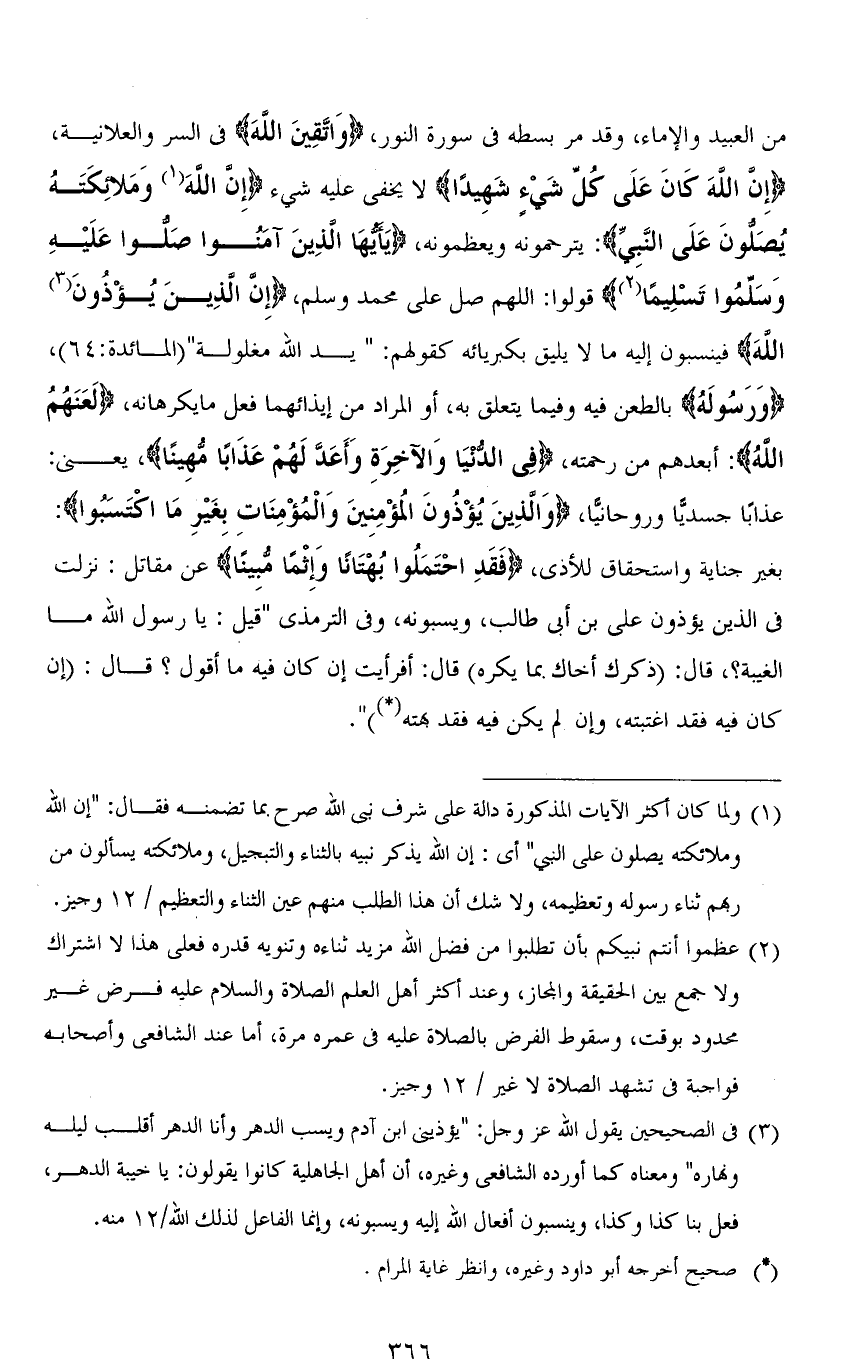 من العبيد والإماء، وقد مر بسطه فى سورة النور، ﴿وَاتَّقِينَ اللَّهَ﴾ فى السر والعلانيـــة،
﴿إِنَّ اللَّهَ كَانَ عَلَى كُلِّ شَيْءٍ شَهِيدًا﴾ لا يخفى عليه شيء ﴿إِنَّ اللَّهَ(١) وَمَلائِكَتَـــهُ
يُصَلُّونَ عَلَى النَّبِيِّ﴾: يترحمونه ويعظمونه، ﴿يَأَيُّهَا الَّذِينَ آمَنُـــوا صَلُّـــوا عَلَيْـــهِ
وَسَلِّمُوا تَسْلِيمًا(٢)﴾ قولوا: اللهم صل على محمد وسلم، ﴿إِنَّ الَّذِيـــنَ يُـــؤْذُونَ(٣)
اللَّهَ﴾ فينسبون إليه ما لا يليق بكبريائه كقولهم: " يـــد الله مغلولـــة"(المـــائدة:٦٤)،
﴿وَرَسُولَهُ﴾ بالطعن فيه وفيما يتعلق به، أو المراد من إيذائهما فعل مايكرهانه، ﴿لَعَنَهُمُ
اللَّهُ﴾: أبعدهم من رحمته، ﴿فِى الدُّنْيَا وَالآخِرَةِ وَأَعَدَّ لَهُمْ عَذَابًا مُّهِينًا﴾، يعـــنى:
عذابًا جسديًّا وروحانيًّا، ﴿وَالَّذِينَ يُؤْذُونَ الْمُؤْمِنِينَ وَالْمُؤْمِنَاتِ بِغَيْرِ مَا اكْتَسَبُوا﴾:
بغير جناية واستحقاق للأذى، ﴿فَقَدِ احْتَمَلُوا بُهْتَانًا وَإِثْمًا مُّبِينًا﴾ عن مقاتل : نزلت
فى الذين يؤذون على بن أبى طالب، ويسبونه، وفى الترمذى "قيل : يا رسول الله مـــا
الغيبة؟، قال: (ذكرك أخاك بما يكره) قال: أفرأيت إن كان فيه ما أقول ؟ قـــال : (إن
كان فيه فقد اغتبته، وإن لم يكن فيه فقد بهته(*))".
(١) ولما كان أكثر الآيات المذكورة دالة على شرف نبى الله صرح بما تضمنـــه فقـــال: "إن الله
وملائكته يصلون على النبي" أى : إن الله يذكر نبيه بالثناء والتبجيل، وملائكته يسألون من
ربهم ثناء رسوله وتعظيمه، ولا شك أن هذا الطلب منهم عين الثناء والتعظيم / ١٢ وجيز.
(٢) عظموا أنتم نبيكم بأن تطلبوا من فضل الله مزيد ثناءه وتنويه قدره فعلى هذا لا اشتراك
ولا جمع بين الحقيقة والمجاز، وعند أكثر أهل العلم الصلاة والسلام عليه فـــرض غـــير
محدود بوقت، وسقوط الفرض بالصلاة عليه فى عمره مرة، أما عند الشافعى وأصحابـه
فواجبة فى تشهد الصلاة لا غير / ١٢ وجيز.
(٣) فى الصحيحين يقول الله عز وجل: "يؤذينى ابن آدم ويسب الدهر وأنا الدهر أقلـــب ليلـــه
ونهاره" ومعناه كما أورده الشافعى وغيره، أن أهل الجاهلية كانوا يقولون: يا خيبة الدهـــر،
فعل بنا كذا وكذا، وينسبون أفعال الله إليه ويسبونه، وإنما الفاعل لذلك الله/١٢ منه.
(*) صحيح أخرجه أبو داود وغيره، وانظر غاية المرام .
٣٦٦